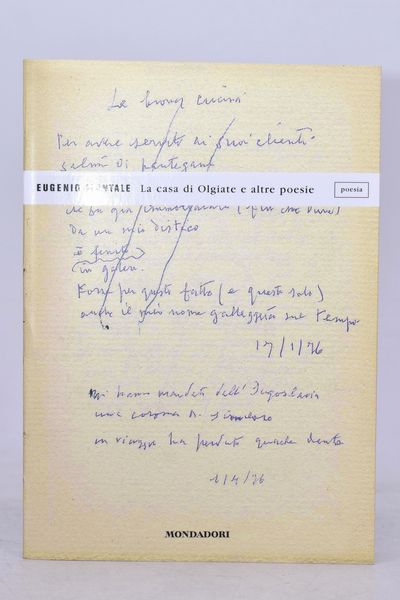 La buona cucina
Per avere servito ai suoi clienti
salmì di pantegana
EUGENIO MONTALE La casa di Olgiate e altre poesie poesia
Da un mio distico
è finito
in galera.
Forse per questo fatto (e questo solo)
anche il mio nome galleggerà sul tempo.
17/1/76
mi hanno mandato dall'Jugoslavia
una corona di
in viaggio ha perduto qualche dente
1/4/76
MONDADORI